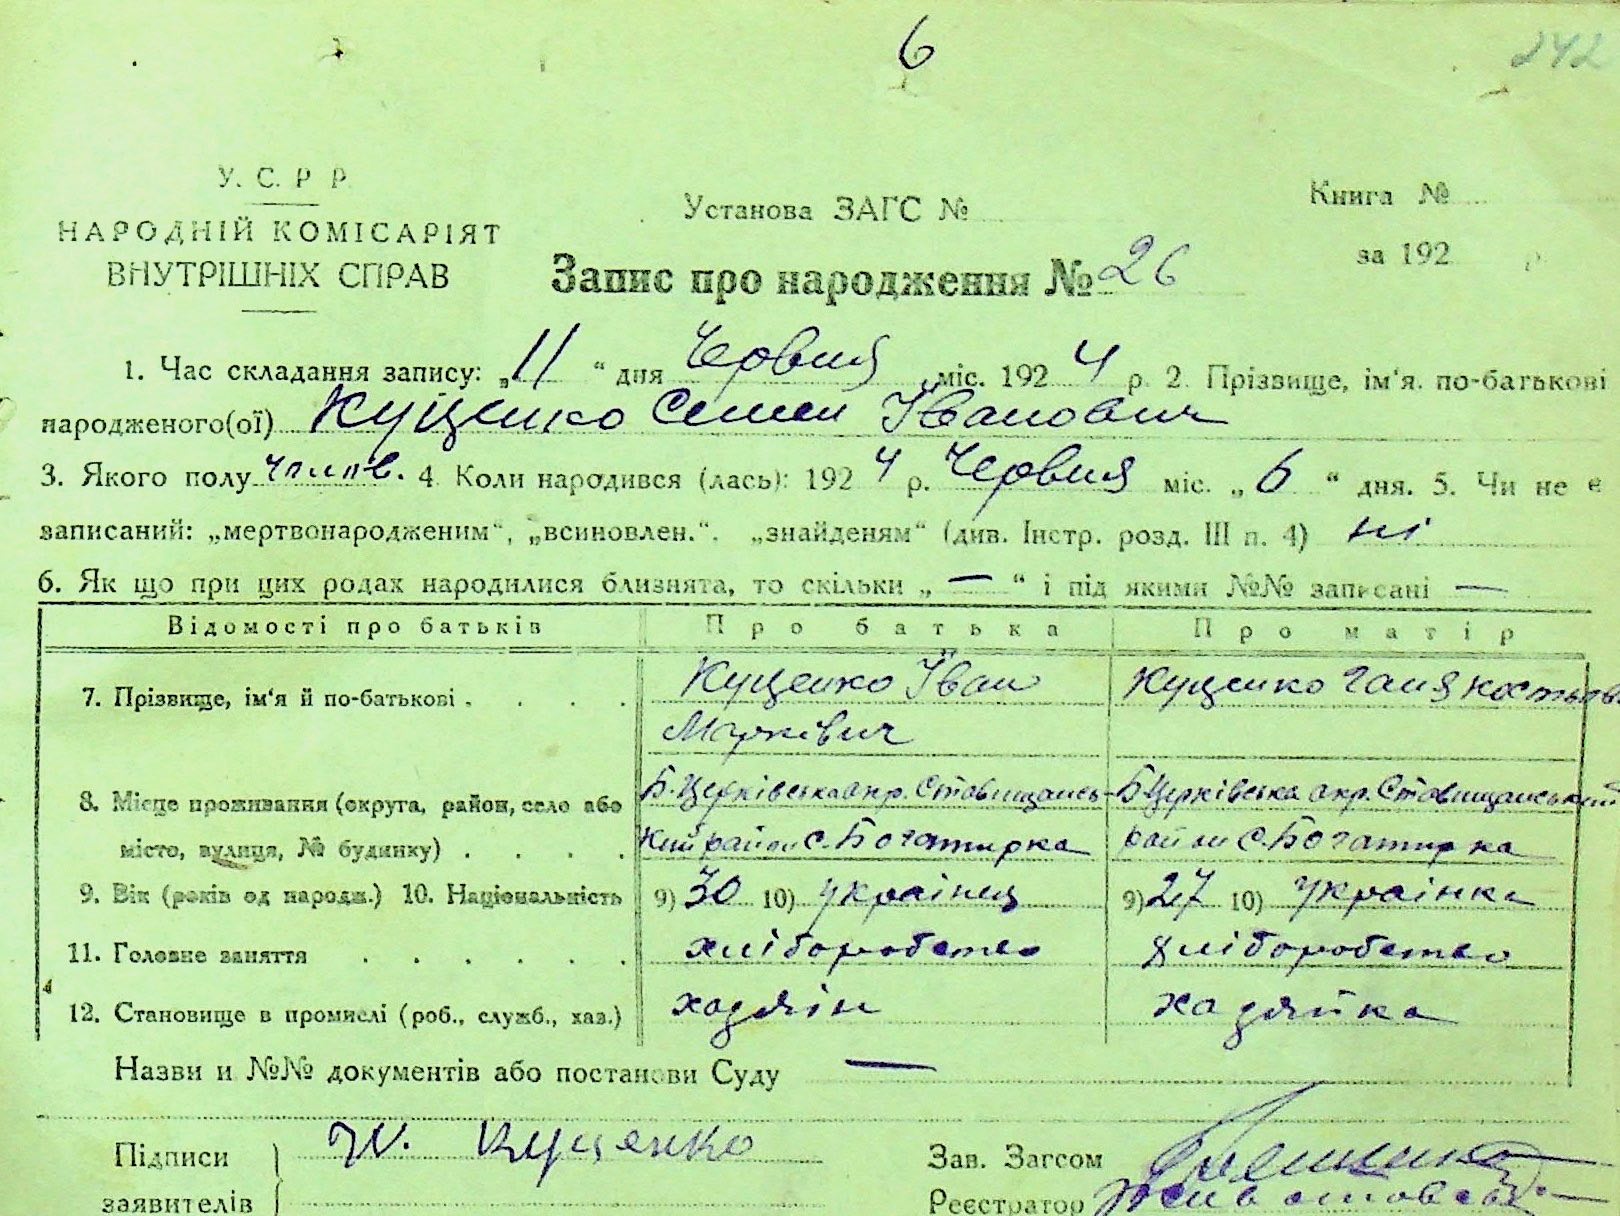 6
242
У. С. Р Р
НАРОДНІЙ КОМІСАРІЯТ
ВНУТРІШНІХ СПРАВ
Установа ЗАГС №
Книга №
за 192 р.
Запис про народження № 26
1. Час складання запису: „11“ дня Червня міс. 1924 р. 2. Прізвище, ім'я. по-батькові
народженого(ої) Куценко Семен Іванович
3. Якого полу чолов. 4. Коли народився (лась): 1924 р. Червня міс. „6“ дня. 5. Чи не є
записаний: „мертвонародженим“, „всиновлен.“. „знайденям“ (див. Інстр. розд. III п. 4) ні
6. Як що при цих родах народилися близнята, то скільки „—“ і під якими №№ записані —
Відомості про батьків Про батька Про матір
7. Прізвище, ім'я й по-батькові . . . . Куценко Іван Куценко Ганя
Марківич
8. Місце проживання (округа, район, село або Б. Церківська окр. Ставищансь- Б Церківська окр. Ставищанський
місто, вулиця, № будинку) . . . . кий район с. Богатирка район С. Богатирка
9. Вік (років од народж.) 10. Національність 9) 30 10) Українец 9) 27 10) Українка
11. Головне заняття . . . . . . хліборобство хліборобство
12. Становище в промислі (роб., служб., хаз.) хадяїн хадяйка
Назви и №№ документів або постанови Суду —
Підписи Куценко Зав. Загсом
заявителів Реєстратор